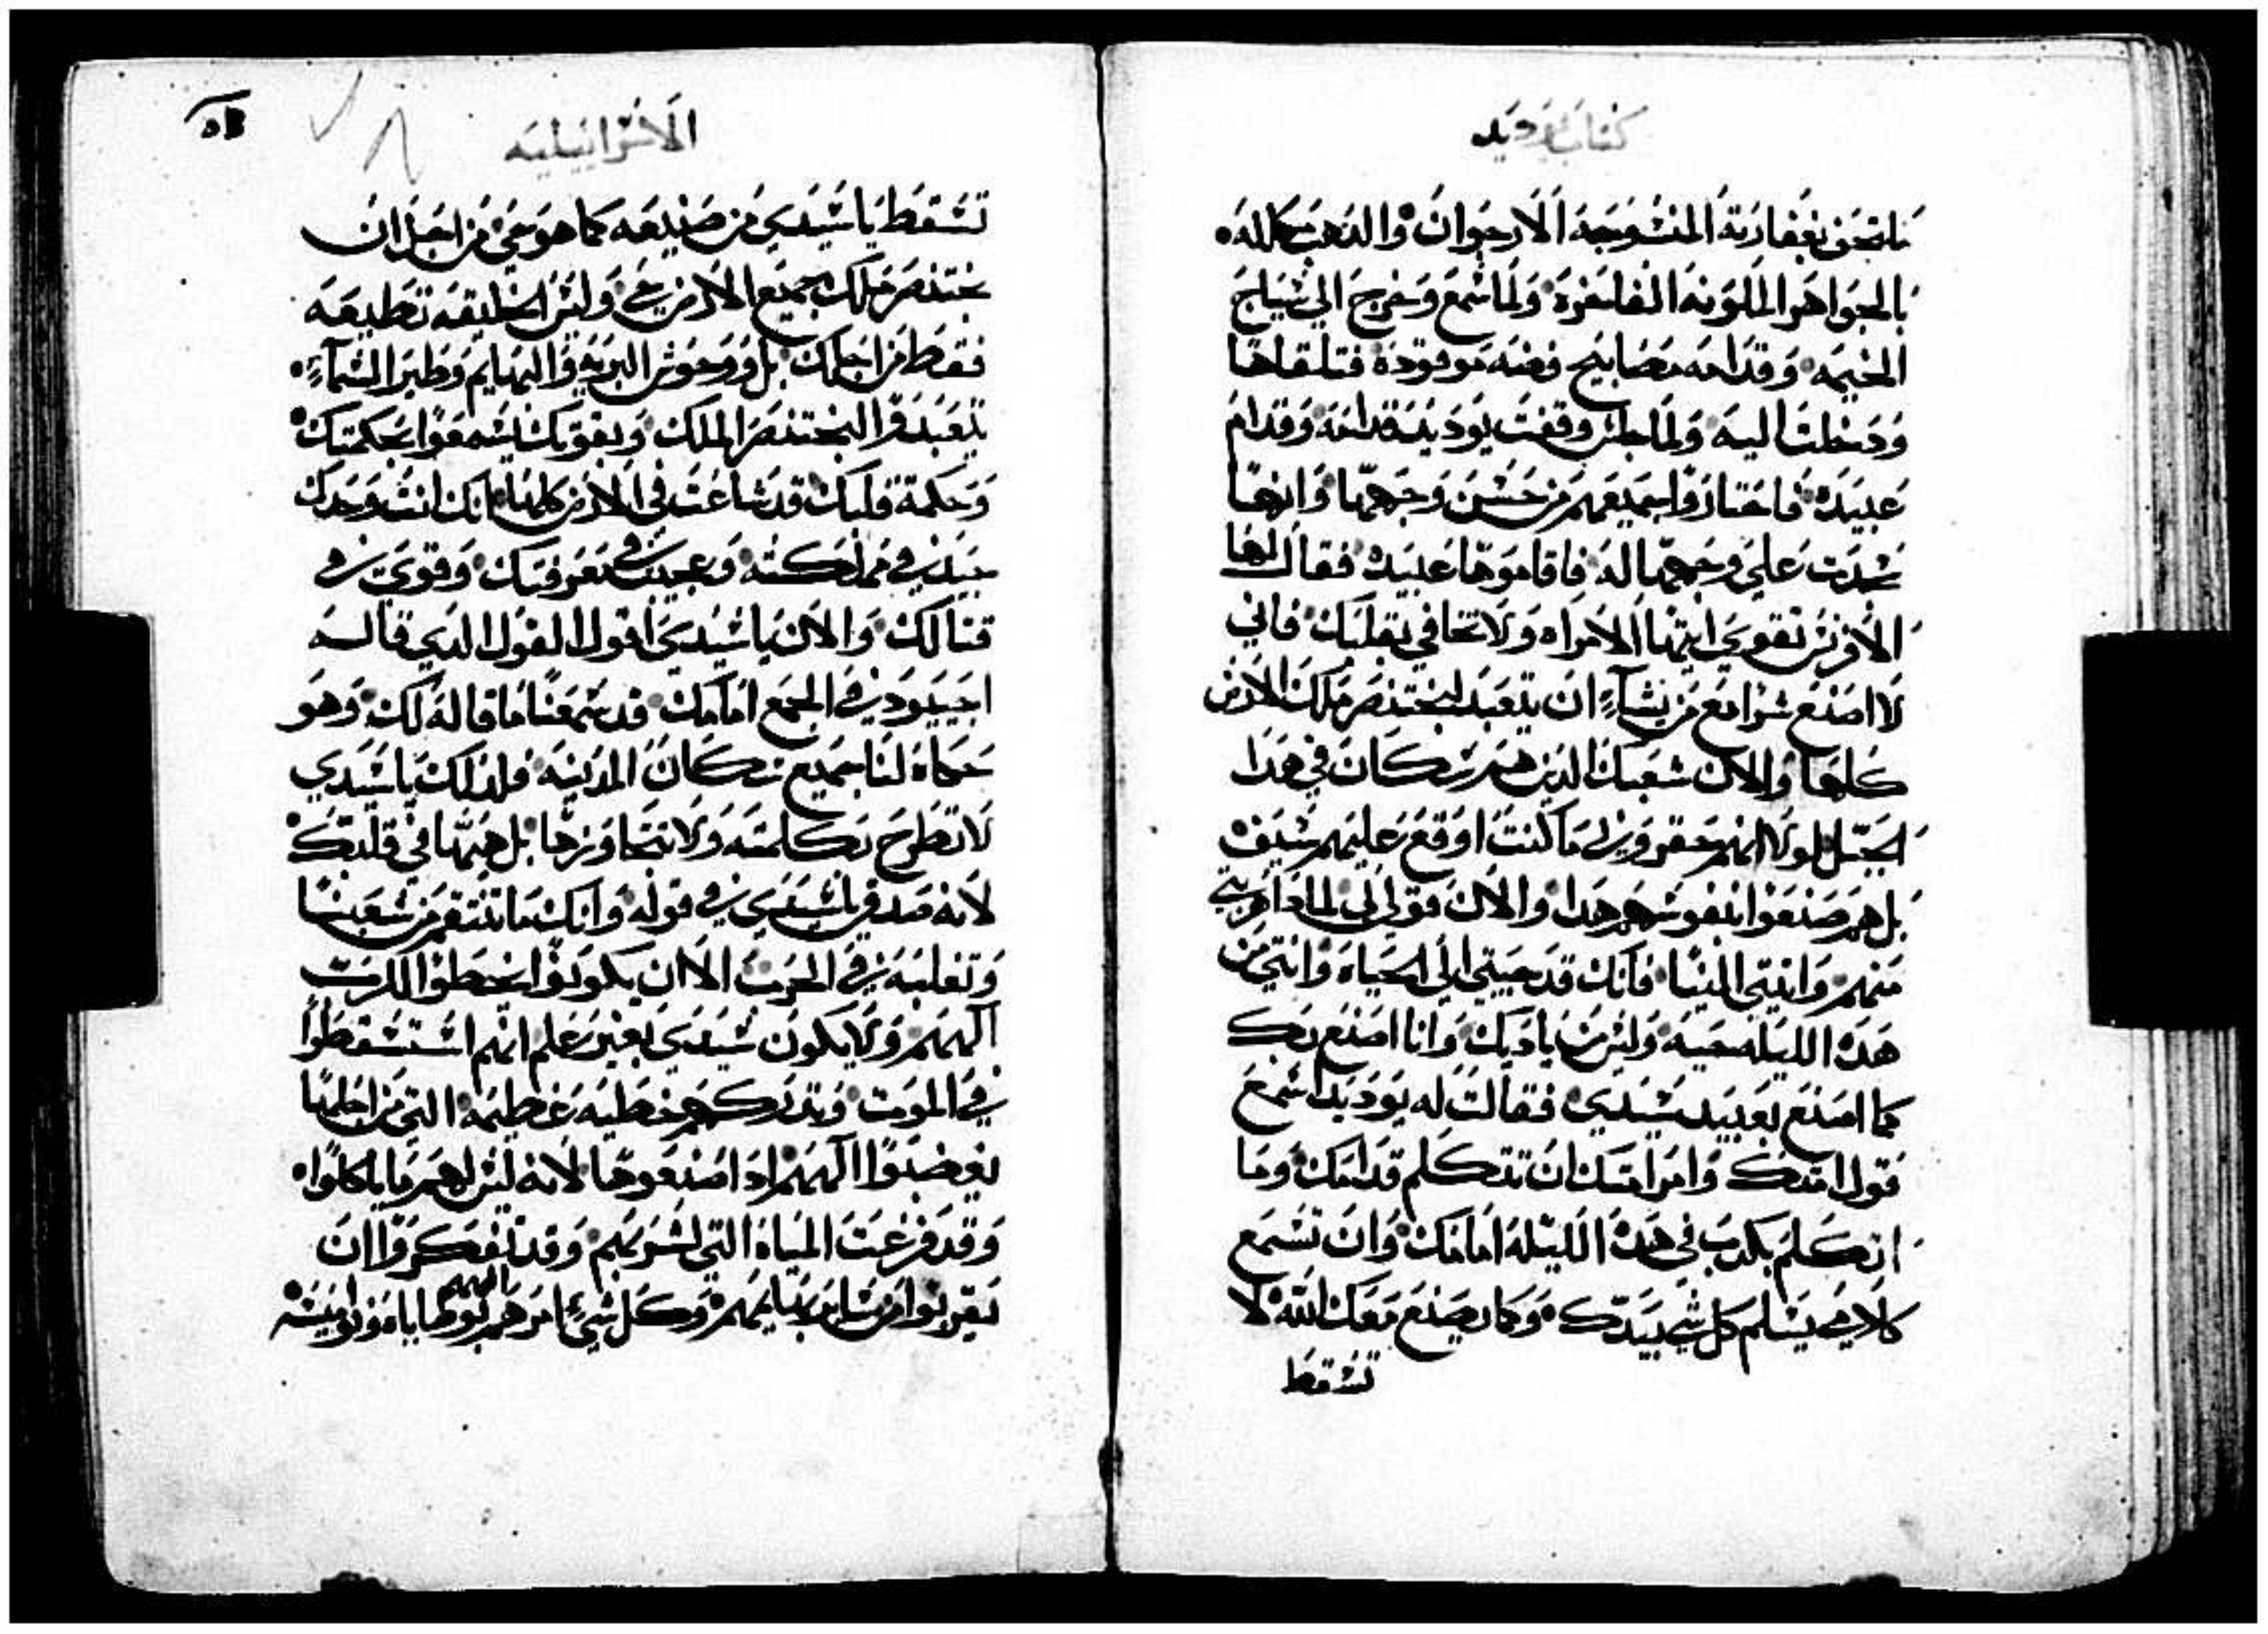 كتاب يوديد
بالجواهر الملونه الفاخرة ولما سمع وخرج الي سياج
الخيمه وقدامه مصابيح فضه موقوده فتلقاها
ودخلت اليه ولما جلس وقفت يوديد قدامه وقدام
عبيده فاحتاروا جميعهم من حسن وجهها وانها
سجدت علي وجهها له فاقاموها عبيده فقال لها
الافرنس تقوي ايتها الامراه ولا تخافي بقلبك فاني
لا اصنع شرا مع من يشآء ان يتعبد لبختنصر ملك الارض
كلها والان شعبك الدين هم سكان في هدا
الجبل لولا انهم حقروني ما كنت اوقع عليهم سيف
بل هم صنعوا بنفوسهم هدا والان قولي لي لمادا هربتي
منهم واتيتي الينا فانك قد جيتي الي الحياه وانتي من
هده الليله حيه وليس من ياديك وانا اصنع بك
كما اصنع بعبيد سيدي فقالت له يوديد اسمع
قول امتك وامر امتك ان تتكلم قدامك وما
اتكلم بكدب في هده الليله امامك وان تسمع
كلامي يسلم كل شي بيدك وكما يصنع معك الله لا
تسقط
الاسراييليه
تسقط يا سيدي من صنيعه كما هو حي من اجل ان
بختنصر ملك جميع الارض حي وليس الخليقه تطيعه
فقط من اجلك بل ووحوش البريه والبهايم وطير السمآء
يتعبدوا لبختنصر الملك وبقوتك يسمعوا بحكمتك
وحكمة قلبك قد شاعت في الارض كلها انك انت وحدك
جيد في مملكته وعجيب في معرفتك وقوي في
قتالك والان يا سيدي اقول القول الدي قاله
اجييود في المجمع امامك قد سمعنا ما قاله لك وهو
حكاه لنا جميع سكان المدينه فلدلك يا سيدي
لا تطرح كلمته ولا تتجاوزها بل هيها في قلبك
لانه صدق يا سيدي في قوله وانك ما تنتقم من شعبنا
وتغلبه في الحرب الا ان يكونوا اخطوا للرب
الههم ولا يكون سيدي بغير علم انهم استسقطوا
في الموت وتدركهم خطيه عظيمه التي من اجلها
يغضبوا الههم ادا صنعوها لانه ليس لهم ما ياكلوا
وقد فرغت المياه التي لشربهم وقد تفكروا ان
يقربوا من ساير بهايمهم وكل شي امرهم الههم